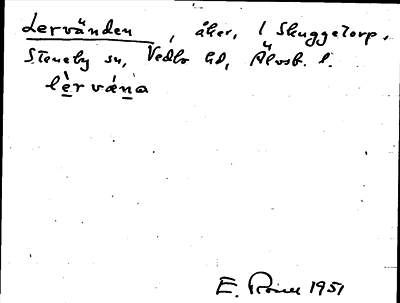 Lervänden, åker, 1 Skuggetorp,
Steneby sn, Vedbo hd, Älvsb. l.
lèrväna
E. 1951